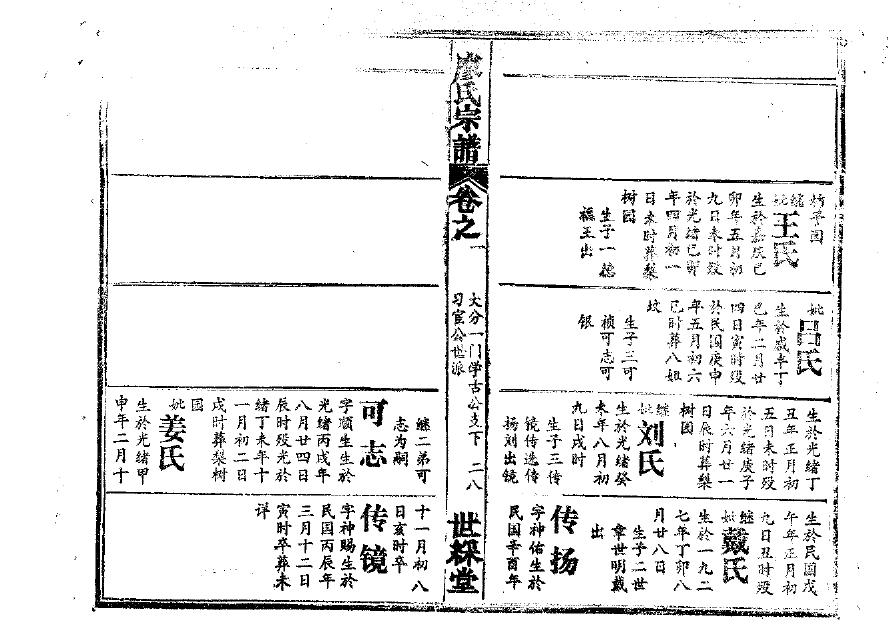 柿子园
继妣王氏
生於嘉庆己
卯年五月初
九日未时殁
於光绪己卯
年四月初一
日未时葬梨
树园
生子一德
福王出
妣吕氏
生於咸丰丁
巳年二月廿
四日寅时殁
於民国庚申
年五月初六
巳时葬八姐
坟
生子三可
祯可志可
银
生於光绪丁
丑年正月初
五日未时殁
於光绪庚子
年六月廿一
日辰时葬梨
树园
继妣刘氏
生於光绪癸
未年八月初
九日戌时
生子三传
镜传选传
扬刘出镜
生於民国戊
午年正月初
九日丑时殁
继妣戴氏
生於一九二
七年丁卯八
月廿八日
生子二世
章世明戴
出
传扬
字神佑生於
民国辛酉年
廖氏宗譜
卷之一
大分一门学古公支下 二八
习宦公世派
世綵堂
继二弟可
志为嗣
可志
字顺生生於
光绪丙戌年
八月廿四日
辰时殁光於
绪丁未年十
一月初二日
戌时葬梨树
园
妣姜氏
生於光绪甲
申年二月十
十一月初八
日亥时卒
传镜
字神赐生於
民国丙辰年
三月十二日
寅时卒葬未
详